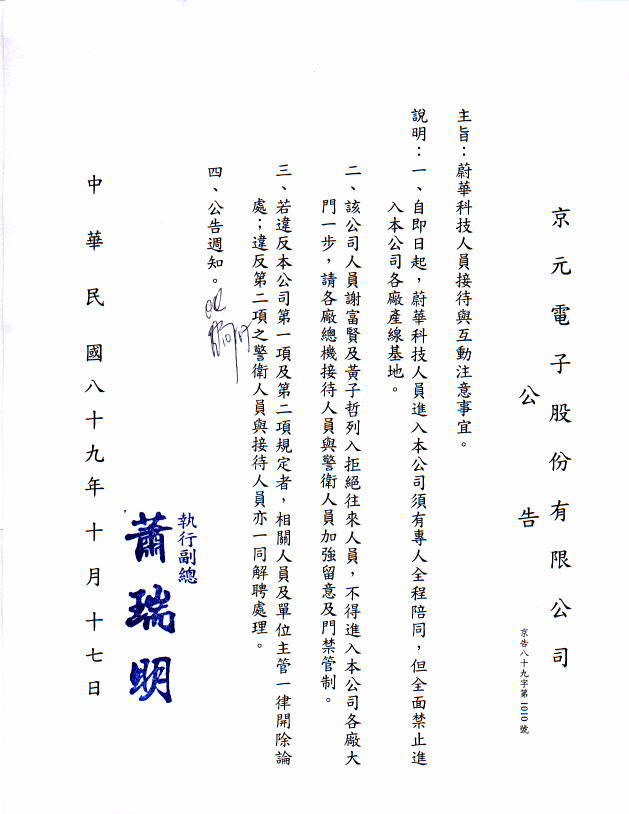 京元電子股份有限公司
公告
京告八十九字第1010號
主旨：蔚華科技人員接待與互動注意事宜。
說明：一、自即日起，蔚華科技人員進入本公司須有專人全程陪同，但全面禁止進
入本公司各廠產線基地。
二、該公司人員謝富賢及黃子哲列入拒絕往來人員，不得進入本公司各廠大
門一步，請各廠總機接待人員與警衛人員加強留意及門禁管制。
三、若違反本公司第一項及第二項規定者，相關人員及單位主管一律開除論
處；違反第二項之警衛人員與接待人員亦一同解聘處理。
四、公告週知。
執行副總
蕭瑞明
中華民國八十九年十月十七日